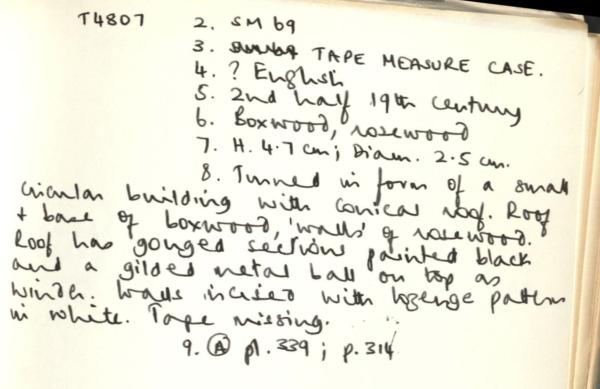 T4807 2. SM 69
3. TAPE MEASURE CASE.
4. ? English
5. 2nd half 19th century
6. Boxwood, rosewood
7. H. 4.7 cm; Diam. 2.5 cm.
8. Turned in form of a small
circular building with conical roof. Roof
+ base of boxwood, 'walls' of rosewood.
Roof has gouged sections painted black
and a gilded metal ball on top as
winder. Walls incised with lozenge pattern
in white. Tape missing.
9. Ⓐ pl. 339; p. 314